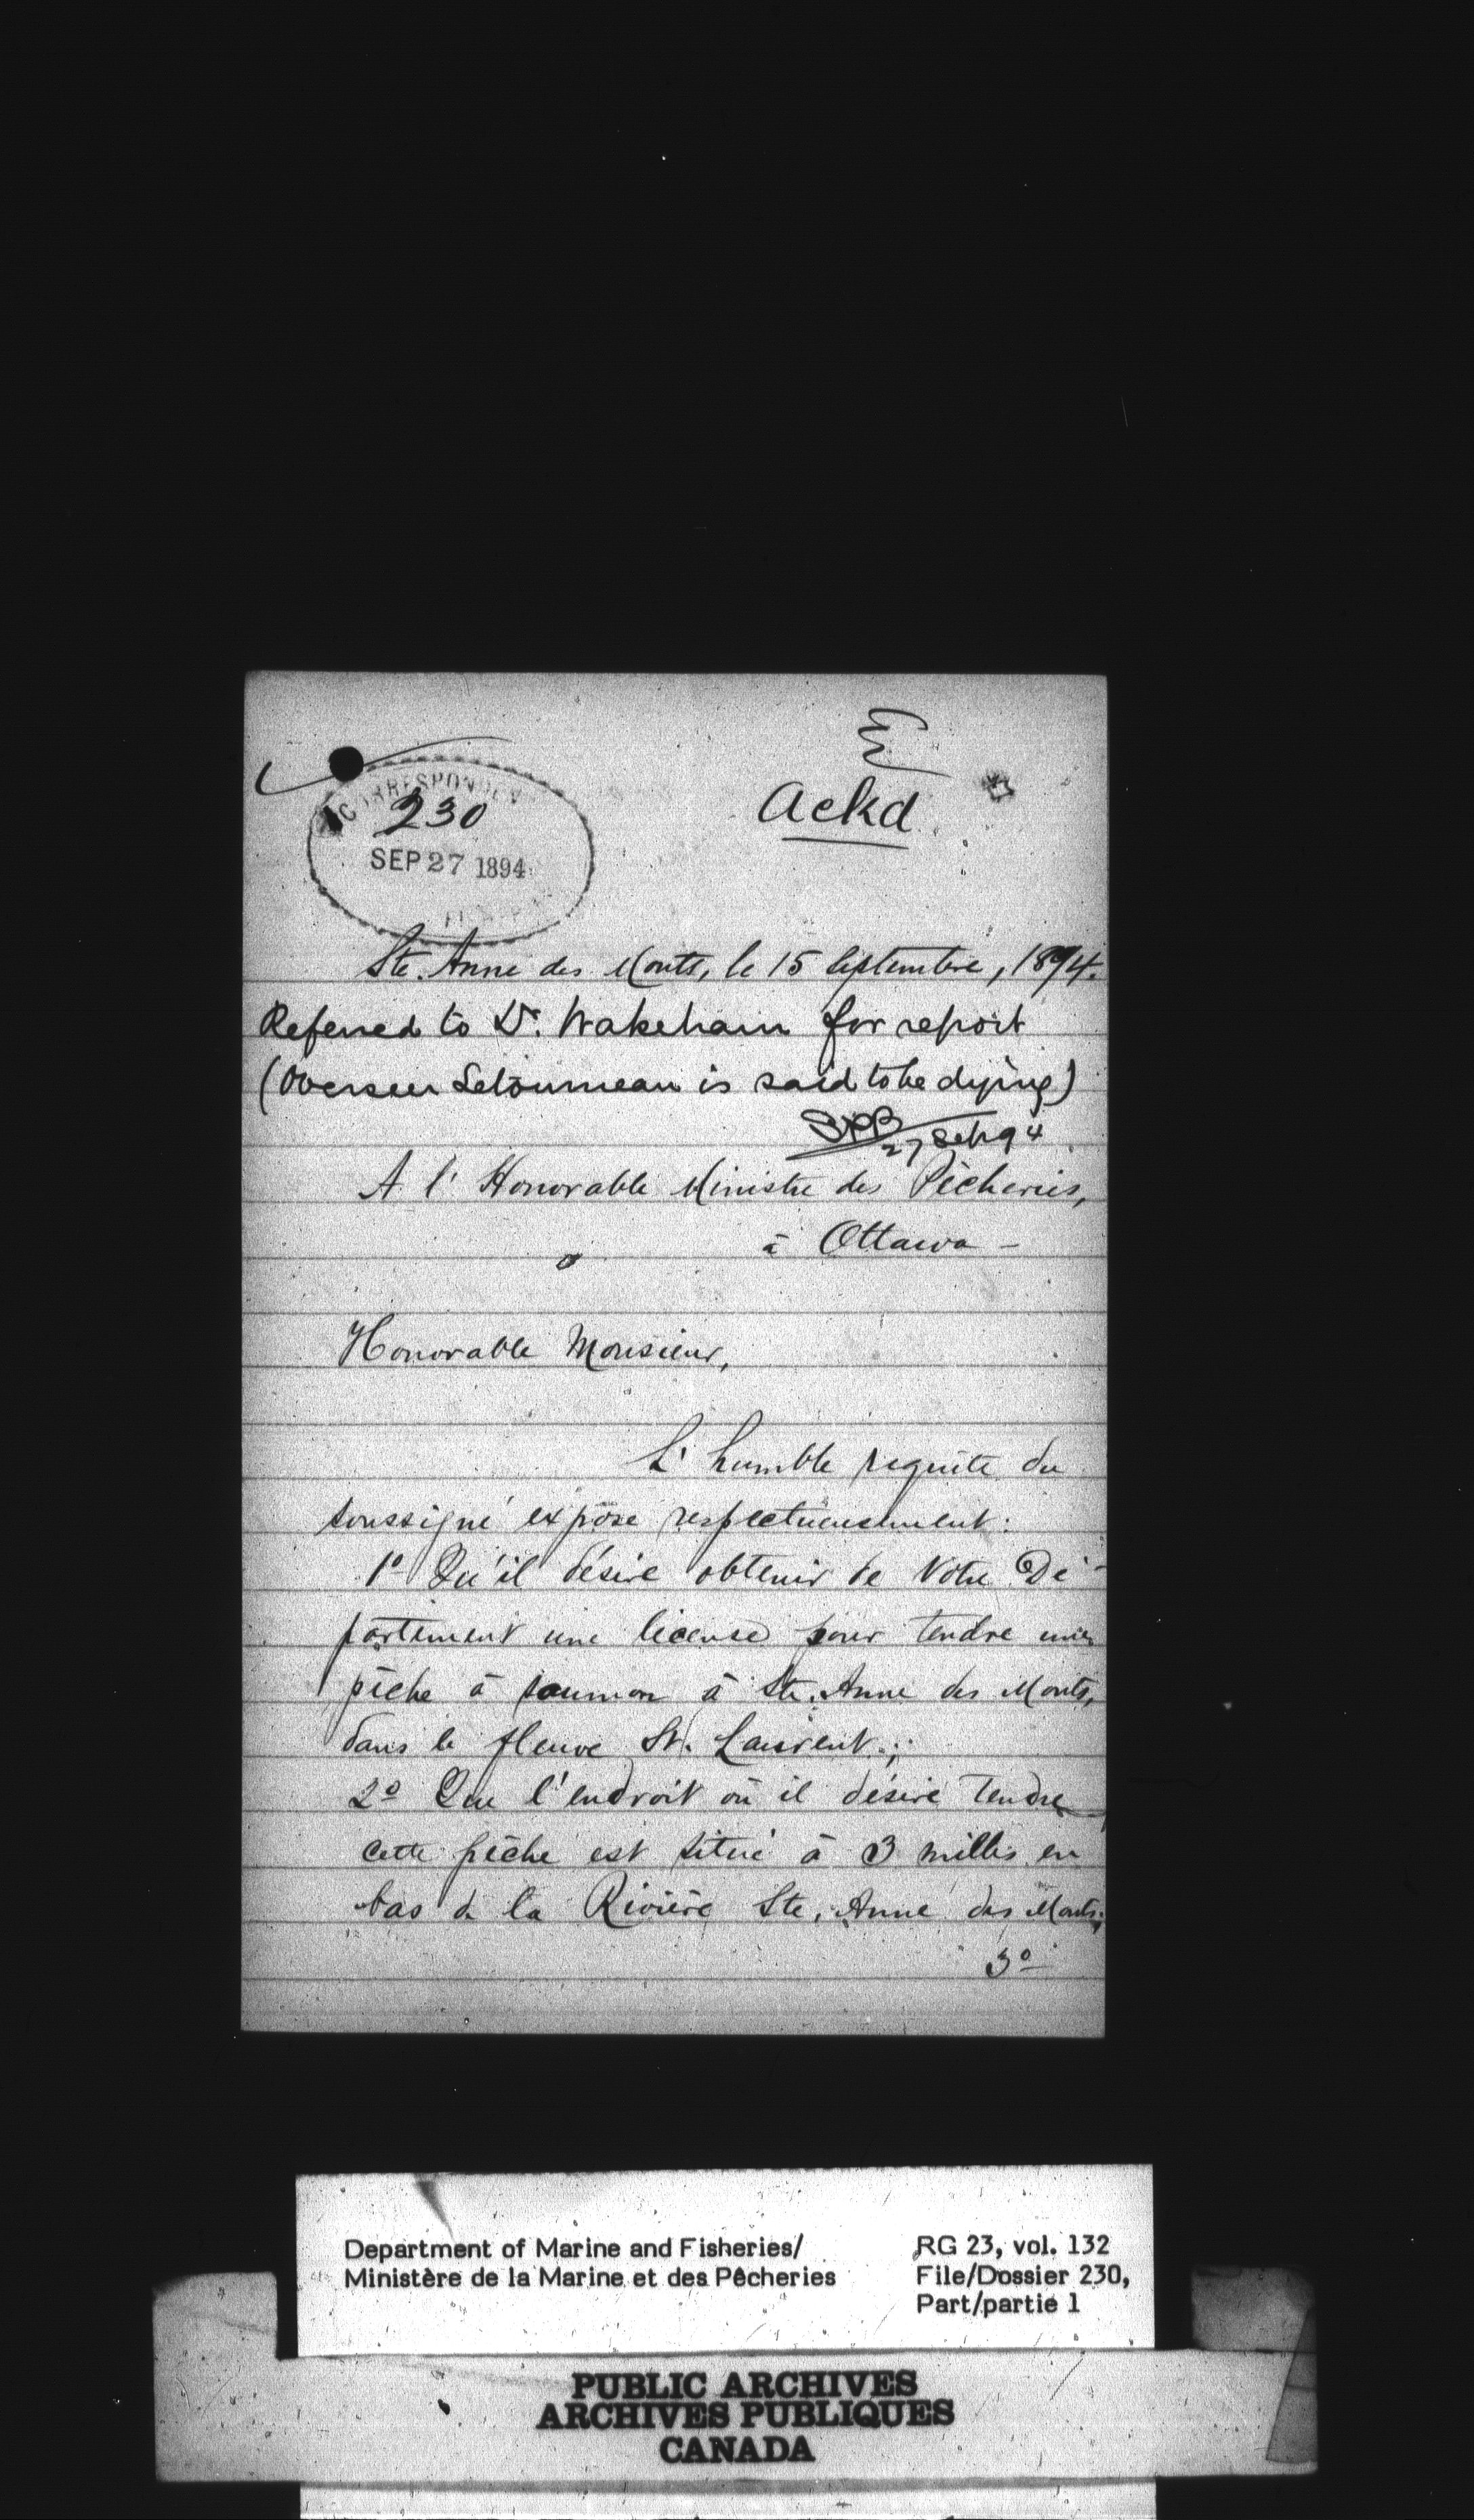 E
Ackd
CORRESPONDEN
230
SEP 27 1894
Ste. Anne des Monts, le 15 Septembre, 1894.
Referred to Dr. Wakeham for report
(Overseer Letourneau is said to be dying)
27 Sep 94
A l'Honorable Ministre des Pêcheries,
à Ottawa -
Honorable Monsieur,
L'humble requête du
soussigné expose respectueusement:
1º Qu'il désire obtenir de Votre Dé-
partement une license pour tendre une
pêche à saumon à Ste. Anne des Monts,
dans le fleuve St. Laurent;
2º Que l'endroit où il désire tendre
cette pêche est situé à 3 milles en
bas de la Rivière Ste. Anne des Monts;
3º
Department of Marine and Fisheries/
Ministère de la Marine et des Pêcheries
RG 23, vol. 132
File/Dossier 230,
Part/partie 1
PUBLIC ARCHIVES
ARCHIVES PUBLIQUES
CANADA